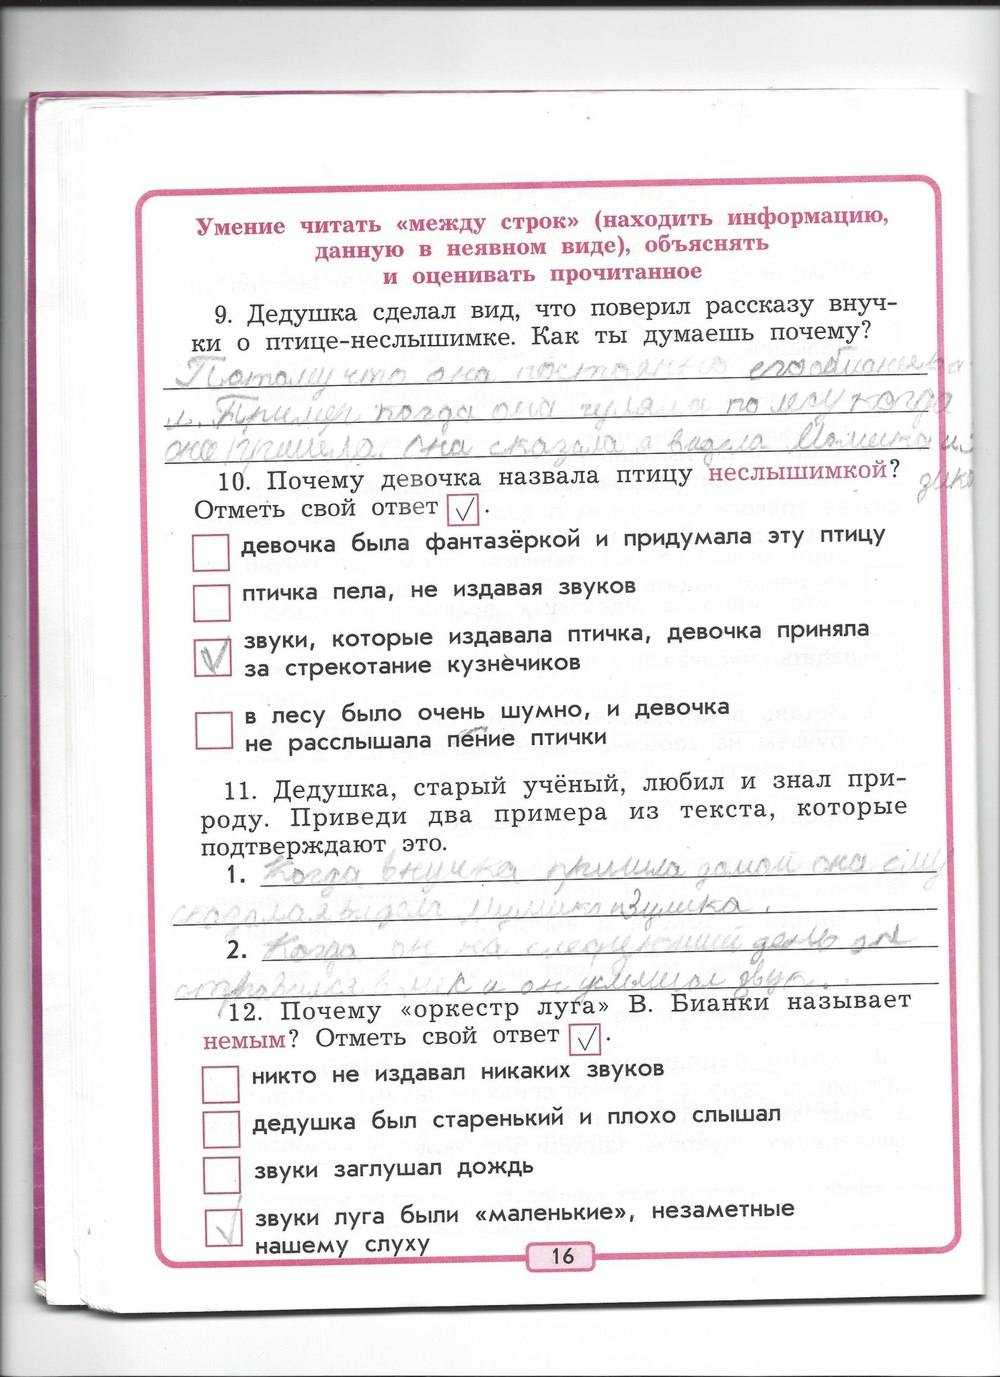 Умение читать «между строк» (находить информацию,
данную в неявном виде), объяснять
и оценивать прочитанное
9. Дедушка сделал вид, что поверил рассказу внуч-
ки о птице-неслышимке. Как ты думаешь почему?
Потому что она постоянно
когда она гуляла по лесу когда
она сказала я видела
10. Почему девочка назвала птицу неслышимкой?
Отметь свой ответ ✓.
девочка была фантазёркой и придумала эту птицу
птичка пела, не издавая звуков
✓ звуки, которые издавала птичка, девочка приняла
за стрекотание кузнечиков
в лесу было очень шумно, и девочка
не расслышала пение птички
11. Дедушка, старый учёный, любил и знал при-
роду. Приведи два примера из текста, которые
подтверждают это.
1. Когда внучка пришла домой она ему
2. Когда он на следующий день
в лес и он услышал звук.
12. Почему «оркестр луга» В. Бианки называет
немым? Отметь свой ответ ✓.
никто не издавал никаких звуков
дедушка был старенький и плохо слышал
звуки заглушал дождь
✓ звуки луга были «маленькие», незаметные
нашему слуху
16